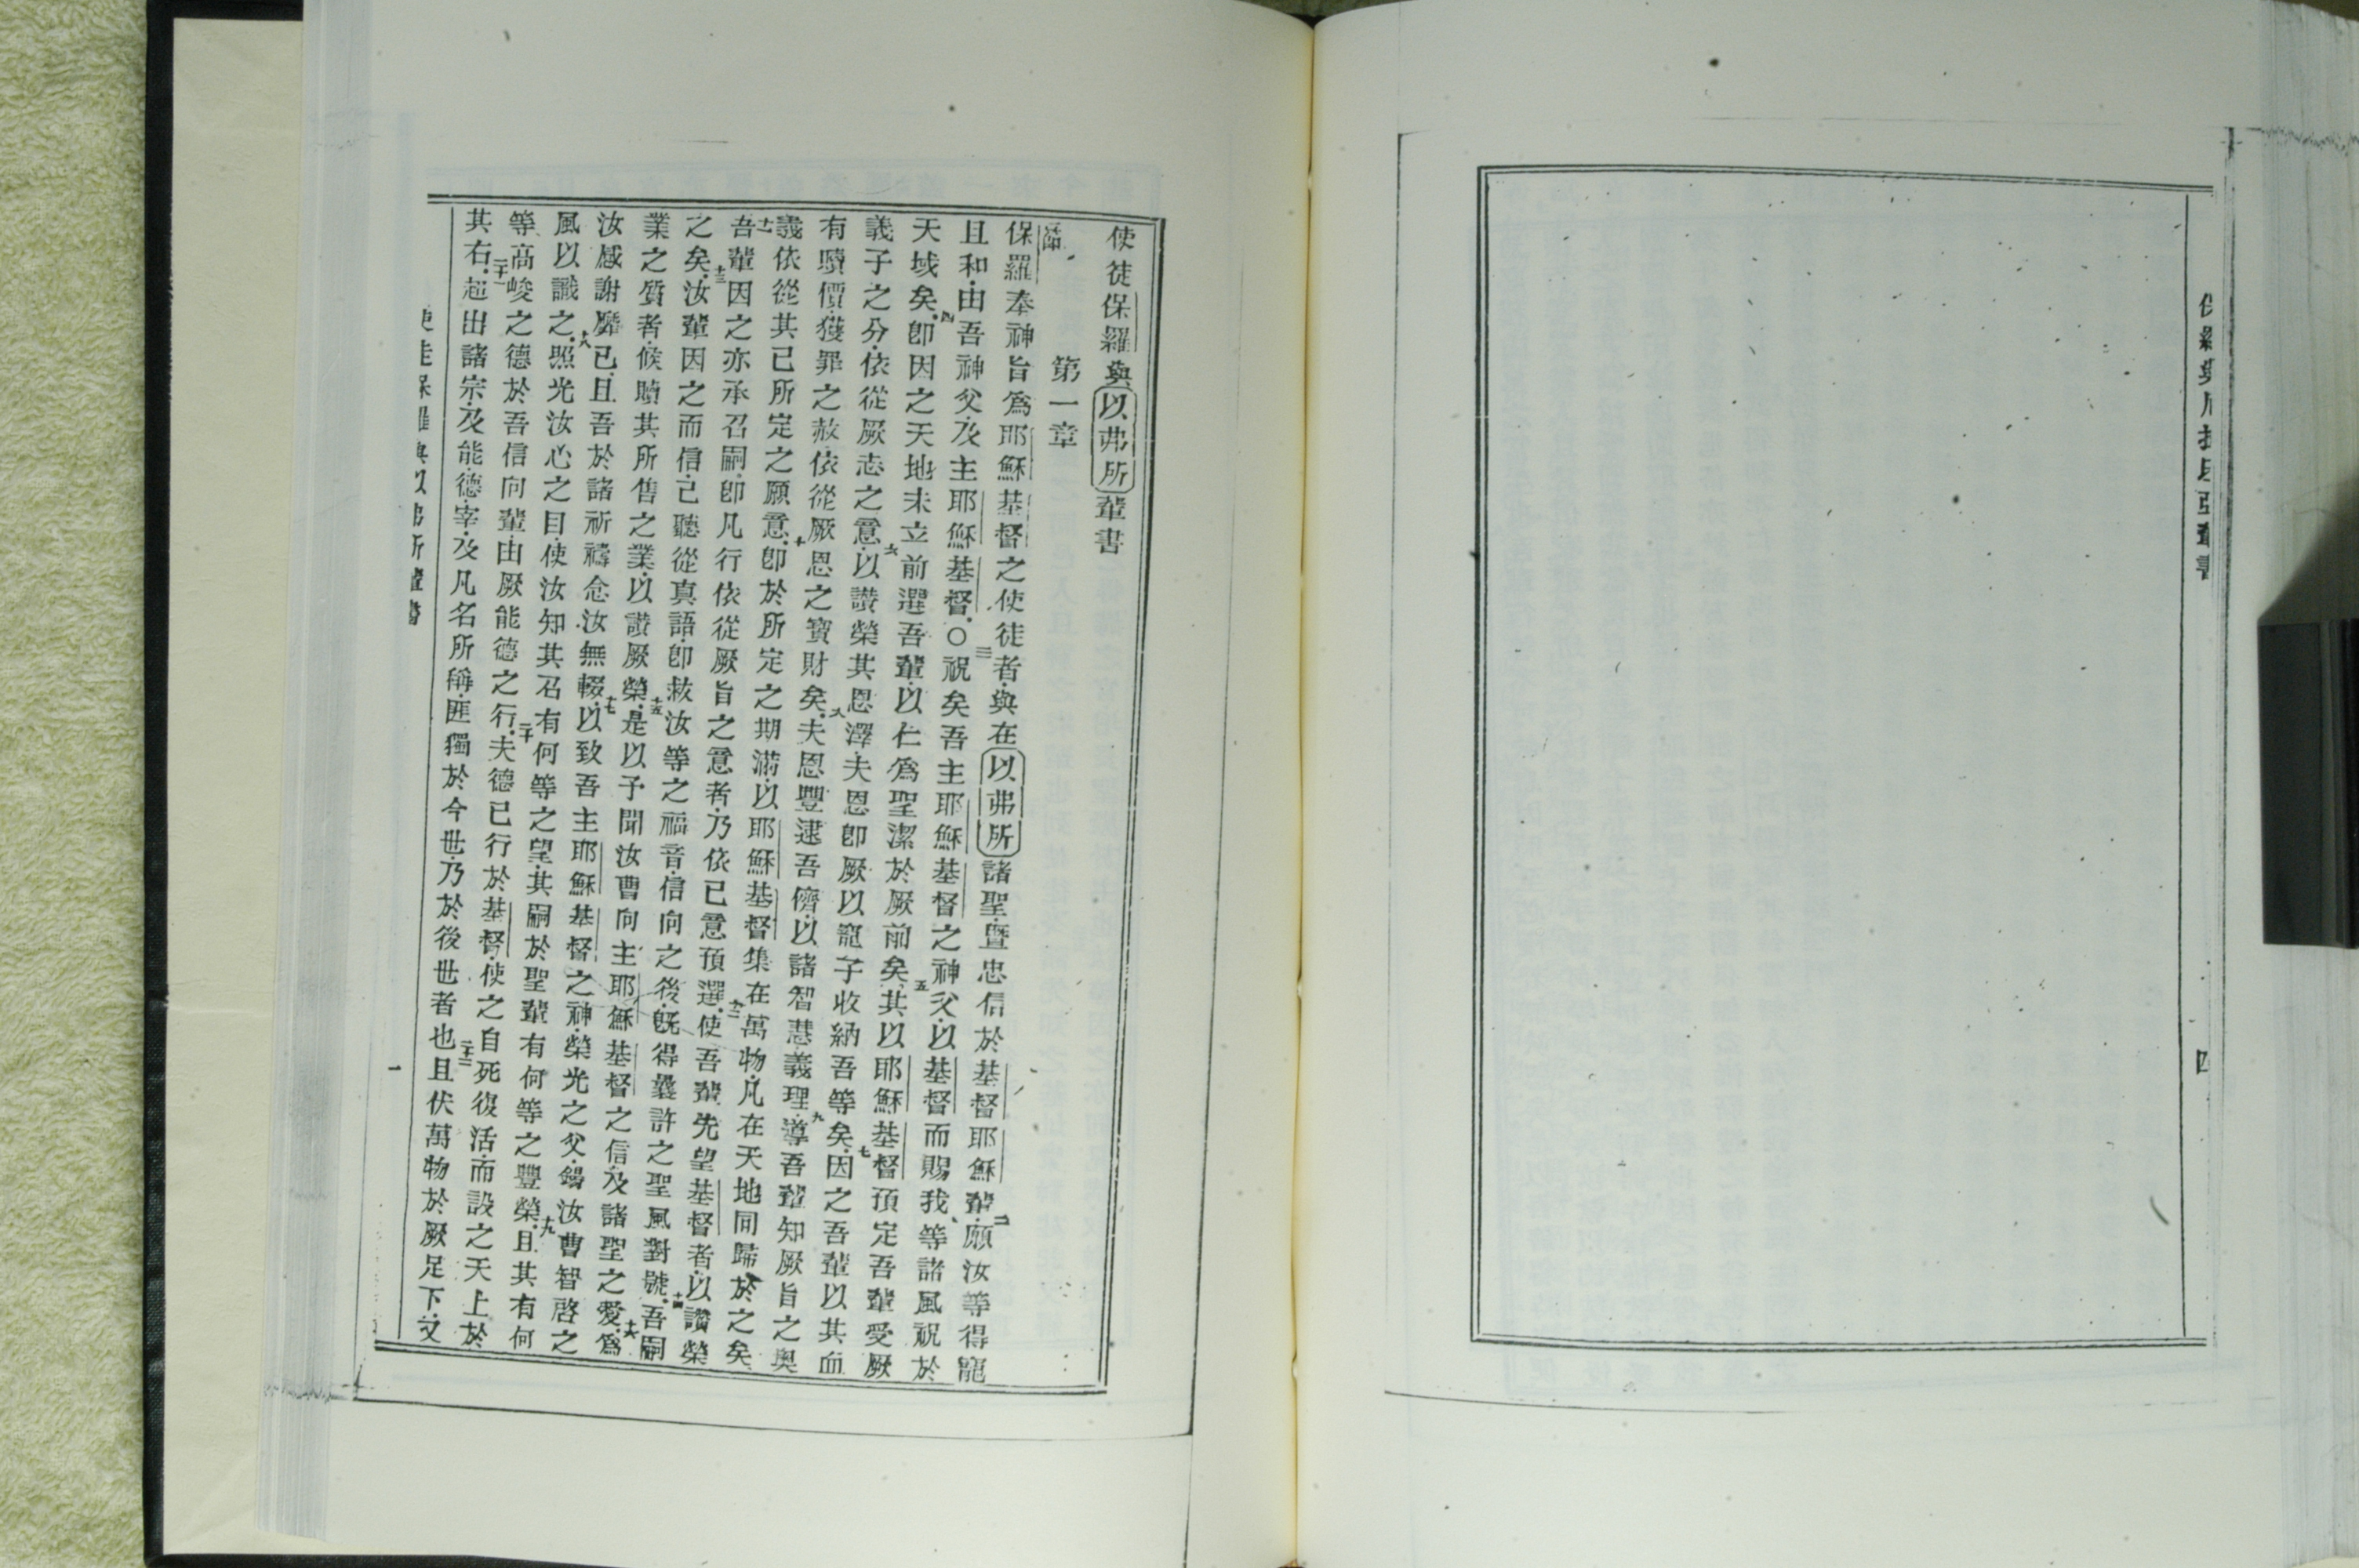 四
使徒保羅與以弗所輩書
第一章
保羅奉神旨爲耶穌基督之使徒者·與在以弗所諸聖·曁忠信於基督耶穌輩·二願汝等得寵
且和·由吾神父·及主耶穌基督·〇三祝矣吾主耶穌基督之神父·以基督而賜我等諸風祝於
天域矣·四卽因之天地未立前選吾輩·以仁爲聖潔於厥前矣·五其以耶穌基督預定吾輩受厥
義子之分·依從厥志之意·六以讚榮其恩澤·夫恩卽厥以寵子收納吾等矣·七因之吾輩以其血
有贖價·獲罪之赦·依從厥恩之寶財矣·八夫恩豐逮吾儕·以諸智慧義理·九導吾輩知厥旨之奧
義依從其己所定之願意·十卽於所定之期滿·以耶穌基督集在萬物·凡在天地同歸於之矣
十一吾輩因之亦承召嗣·卽凡行依從厥旨之意者·乃依己意預選·十二使吾輩先望基督者·以讚榮
之矣·十三汝輩因之而信·己聽從真語·卽救汝等之福音·信向之後·旣得曩許之聖風對號·十四吾嗣
業之質者·候贖其所售之業·以讚厥榮·十五是以予聞汝曹向主耶穌基督之信·及諸聖之愛·十六爲
汝感謝靡已·且吾於諸祈禱念汝無輟·十七以致吾主耶穌基督之神·榮光之父·錫汝曹智啓之
風以識之·十八照光汝心之目·使汝知其召有何等之望·其嗣於聖輩有何等之豐榮·十九且其有何
等高峻之德於吾信向輩·由厥能德之行·二十夫德已行於基督·使之自死復活·而設之天上於
其右·二十一超出諸宗·及能·德·宰·及凡名所稱·匪獨於今世·乃於後世者也·二十二且伏萬物於厥足下·又
使徒保羅與以弗所輩書
一